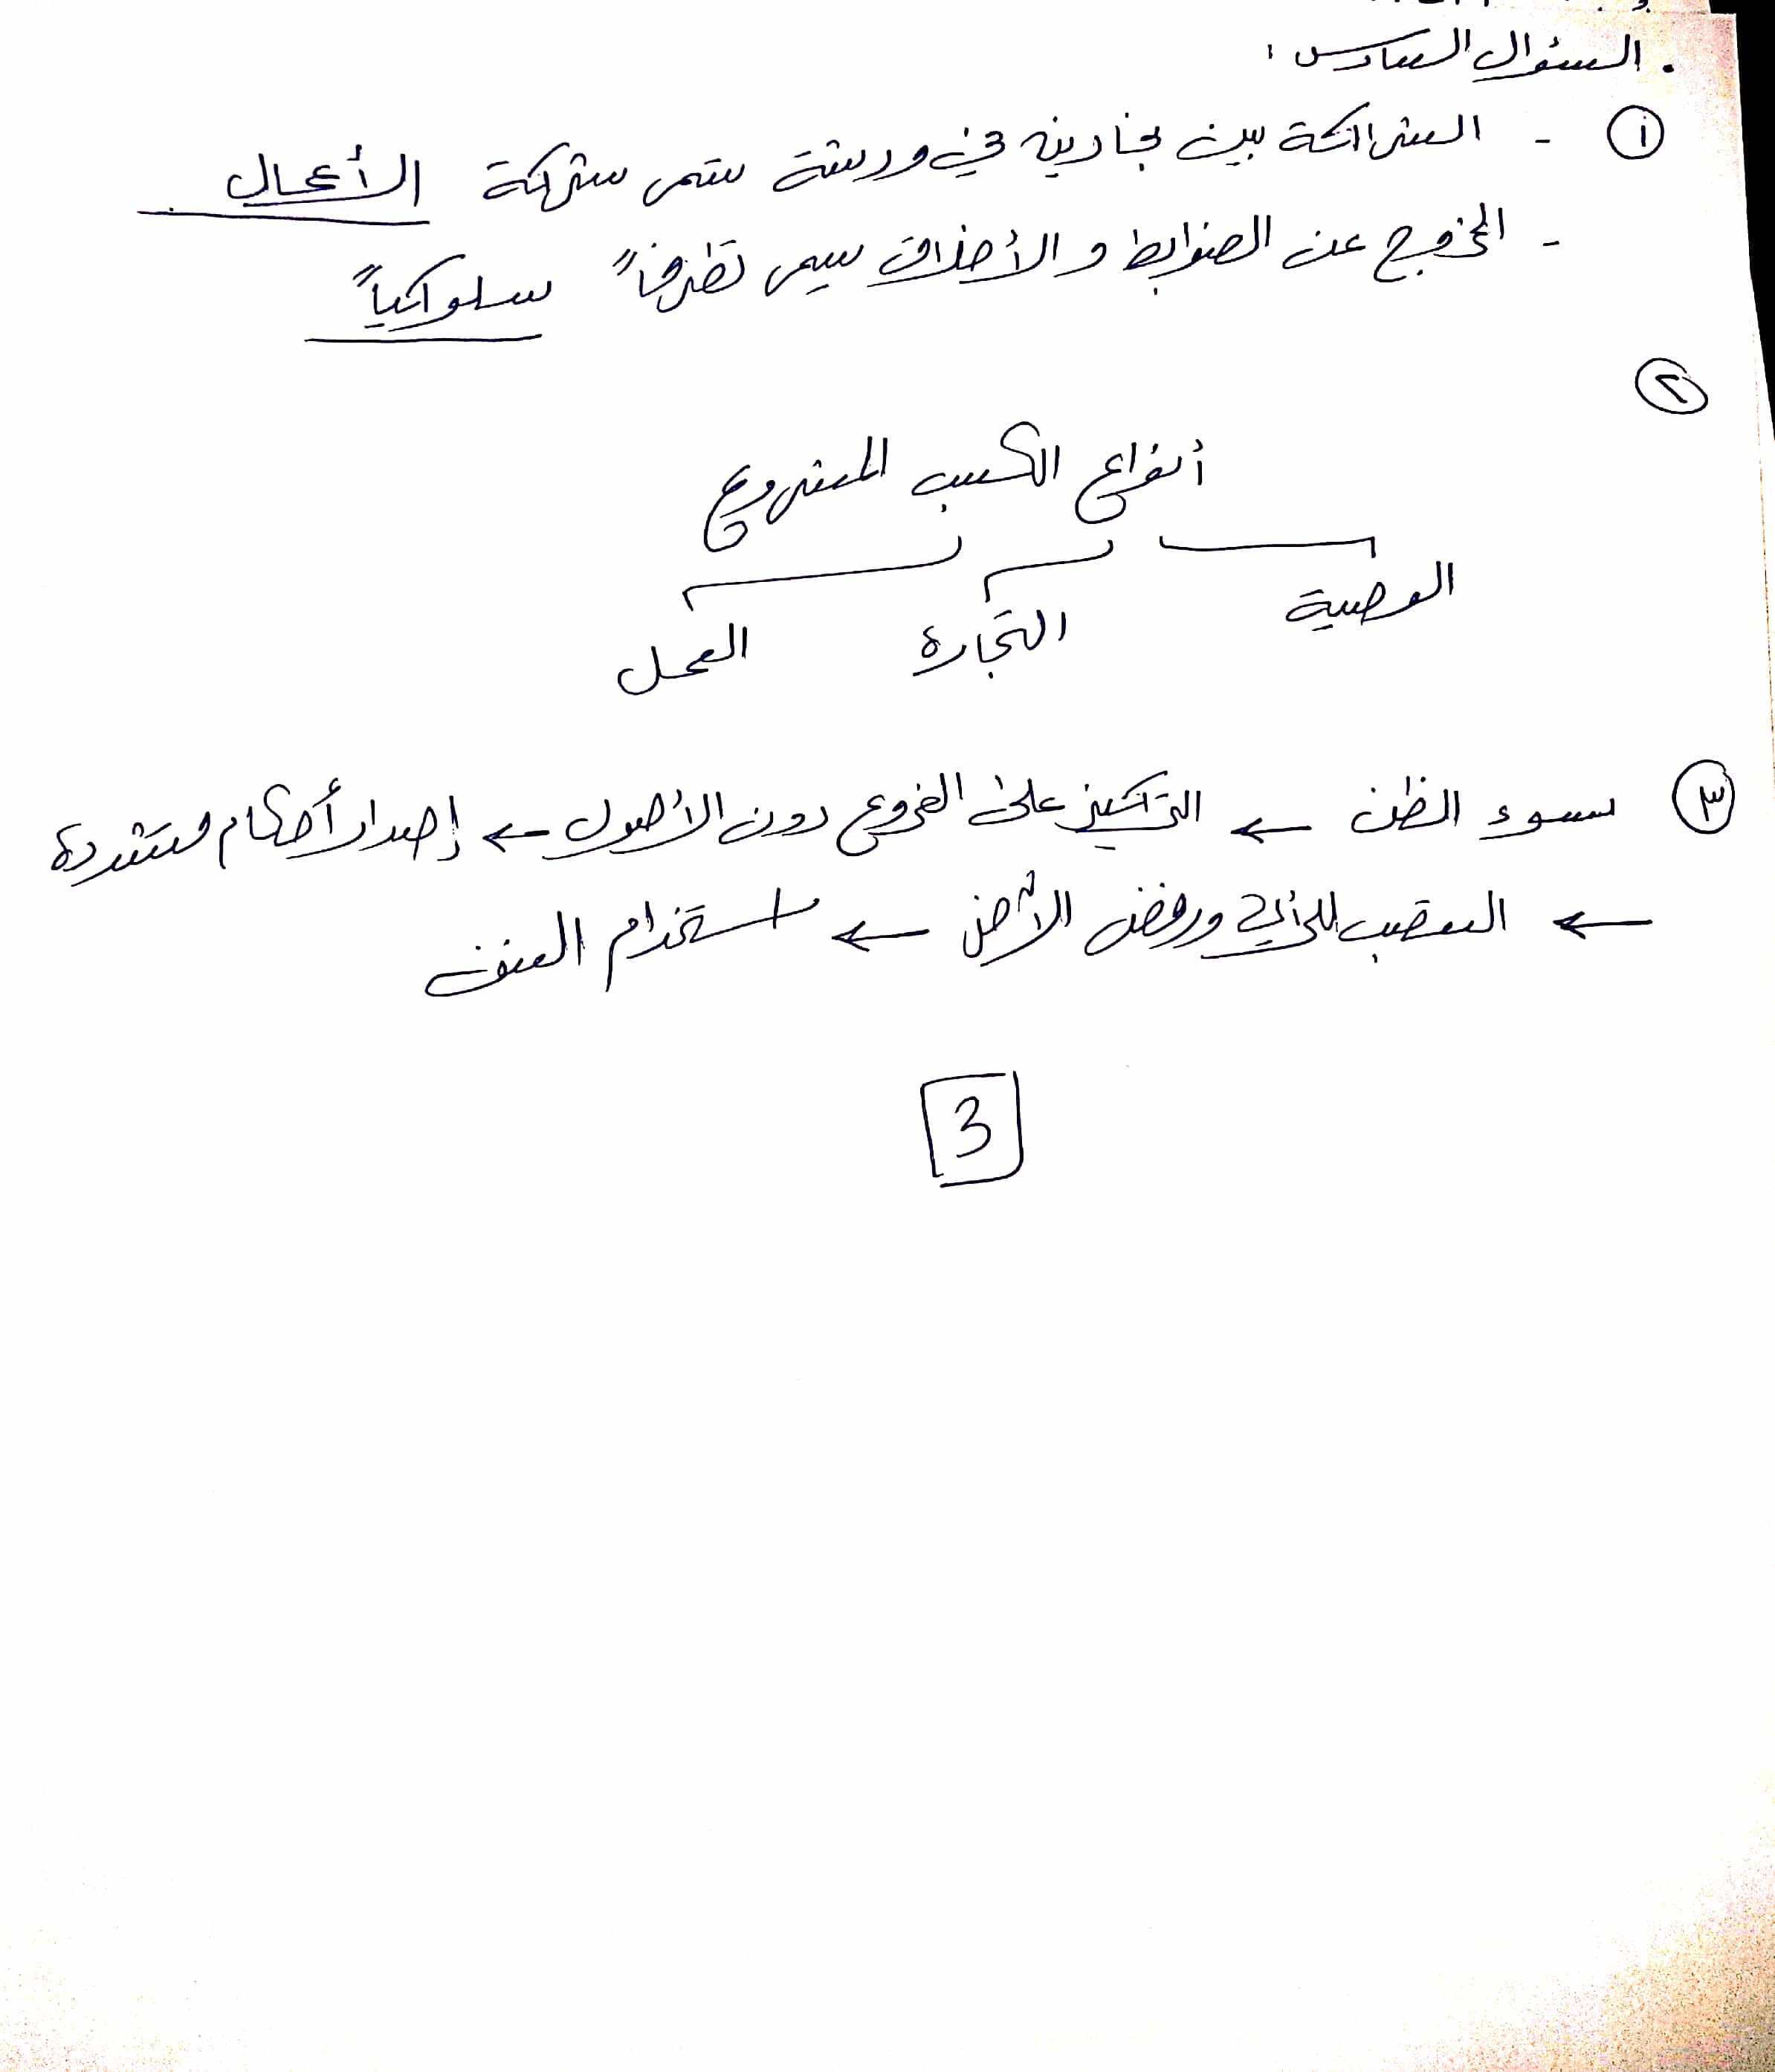 . السؤال السادس :
① - الشراكة بين نجارين في ورشة تسمى شركة الأعمال
- الخروج عن الضوابط و الأخلاق يسمى تطرفاً سلوكياً
②
أنواع الكسب المشروع
الوصية التجارة العمل
③ سوء الظن ← التركيز على الفروع دون الأصول ← إصدار أحكام متشددة
← التعصب للرأي ورفض الآخر ← استخدام العنف
3